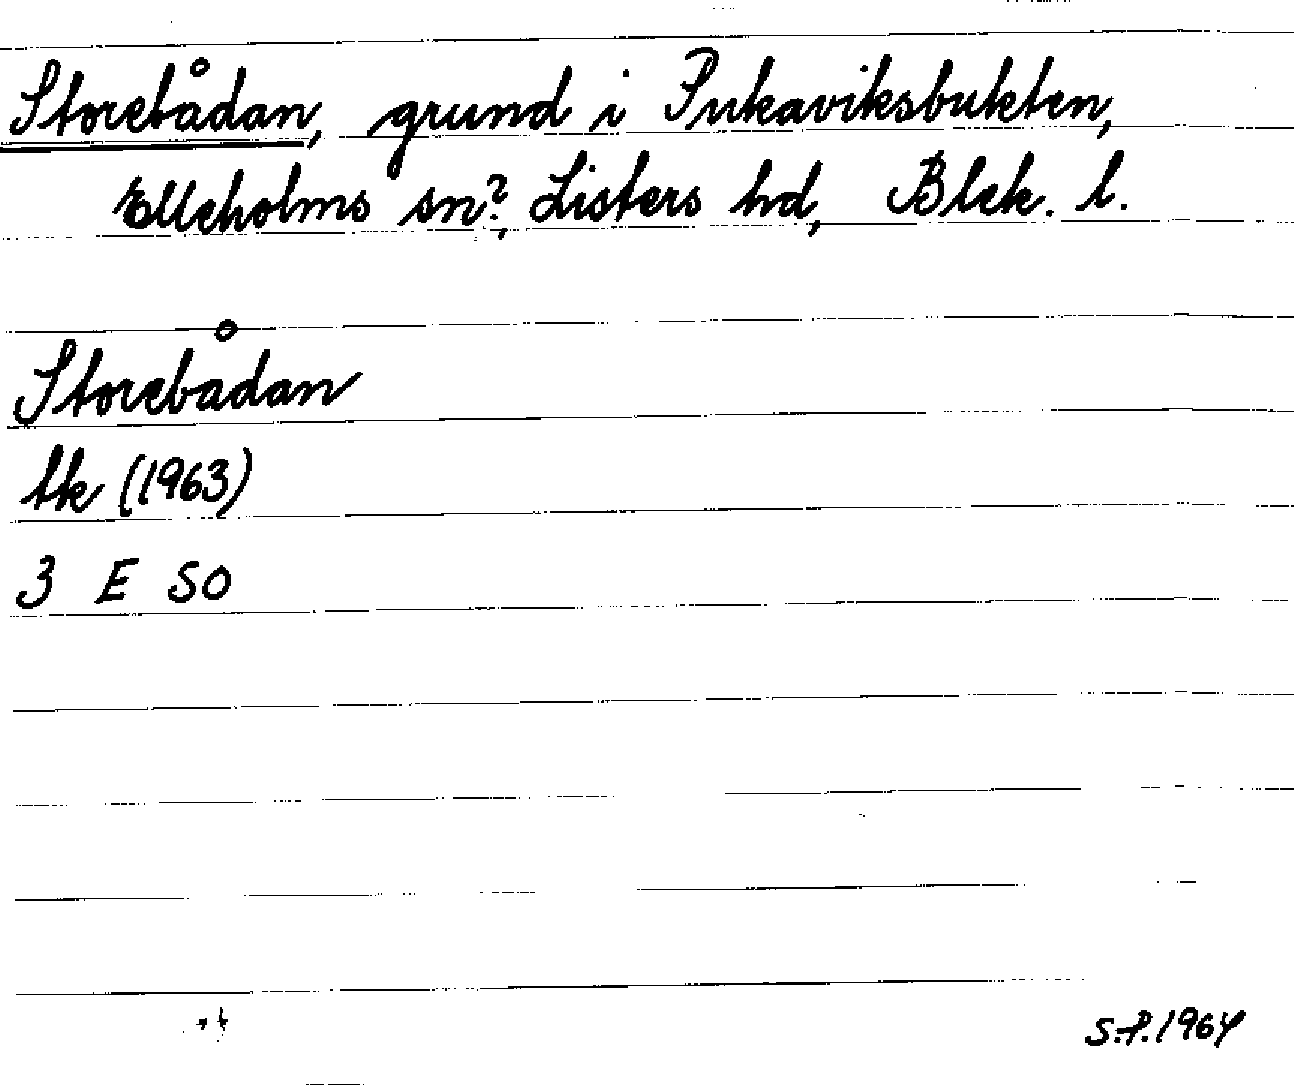 Storebådan, grund i Pukaviksbukten,
Elleholms sn?, Listers hd, Blek. l.
Storebådan
tk (1963)
3 E SO
S.P. 1964